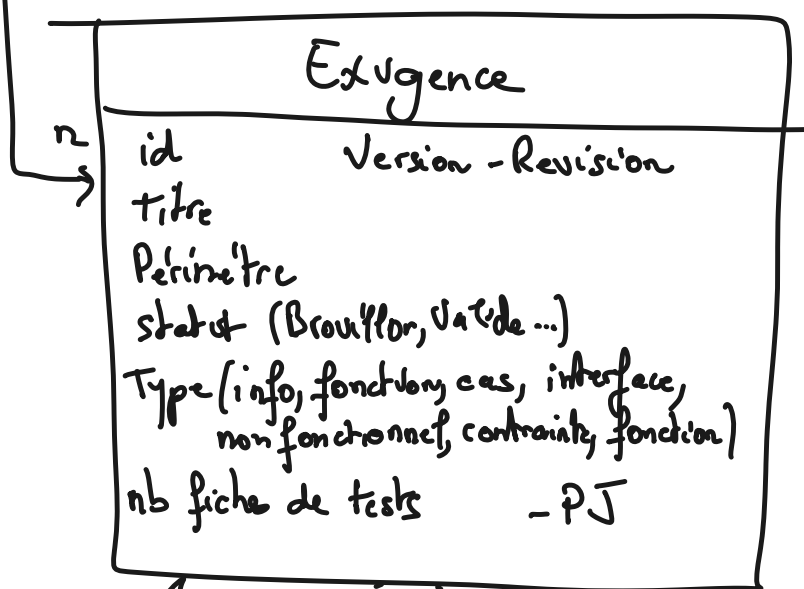 Exigence
n
id Version - Revision
titre
Périmètre
statut (Brouillon, Valide ...)
Type (info, fonction, cas, interface,
non fonctionnel, contrainte, fonction)
nb fiches de tests - PJ